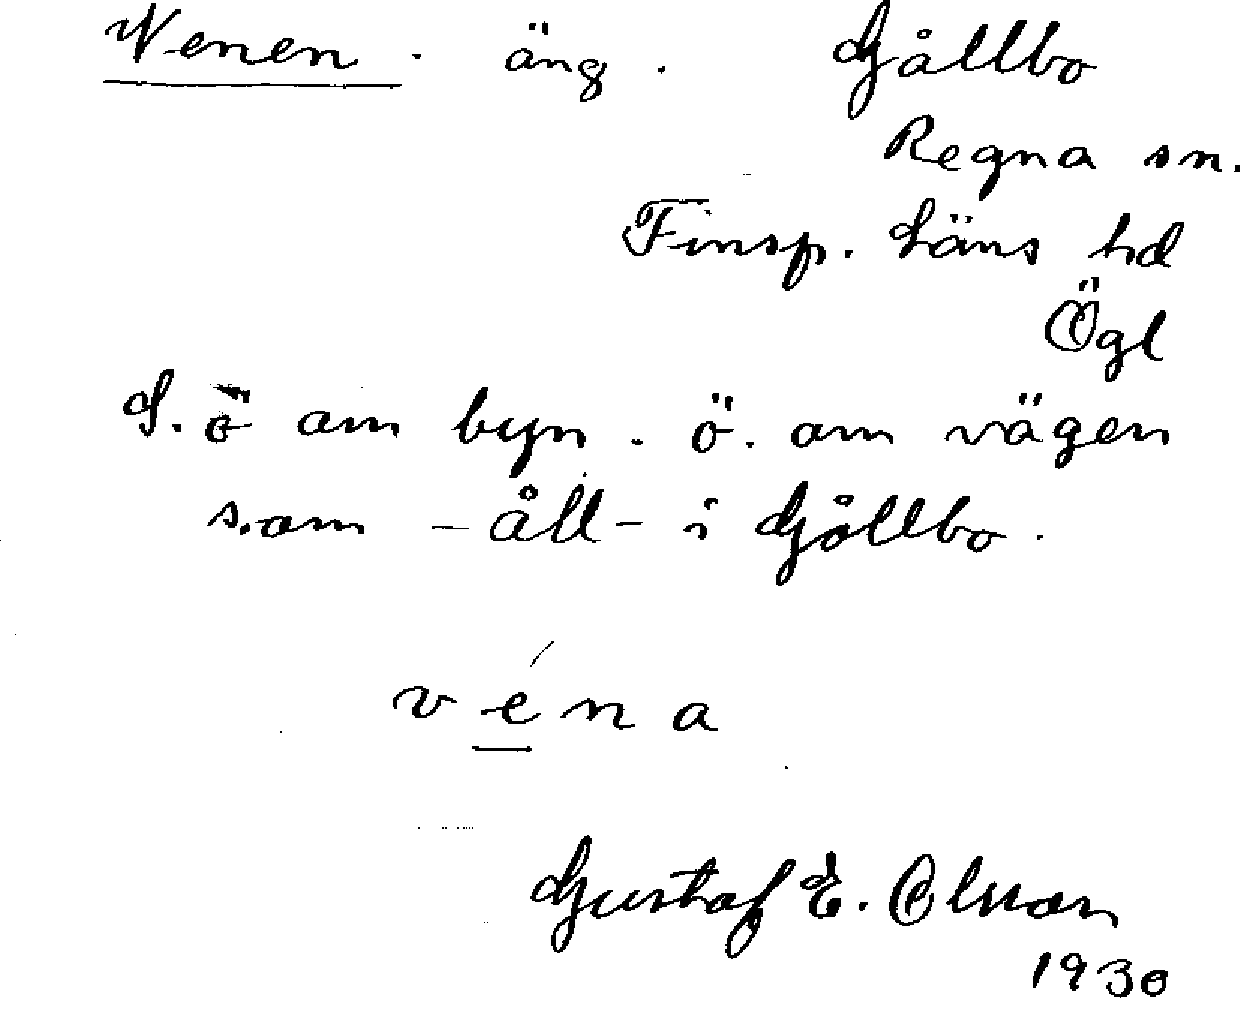 Venen. äng. Gållbo
Regna sn.
Finsp. läns hd
Ögl
S. ö om byn. ö. om vägen
s.om - åll - i Gållbo.
véna
Gustaf E. Olsson
1930